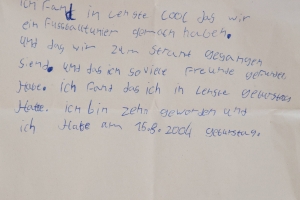 ich Fand in Lenste cool das wir
ein Fussballtunier gemach haben.
und das wir zum Strant gegangen
sind. und das ich so viele Freunde gefunden
Habe. ich Fant das ich in Lenste geburstag
Hate. ich bin zehn geworden und
ich Hate am 15.8.2004 geburstag.